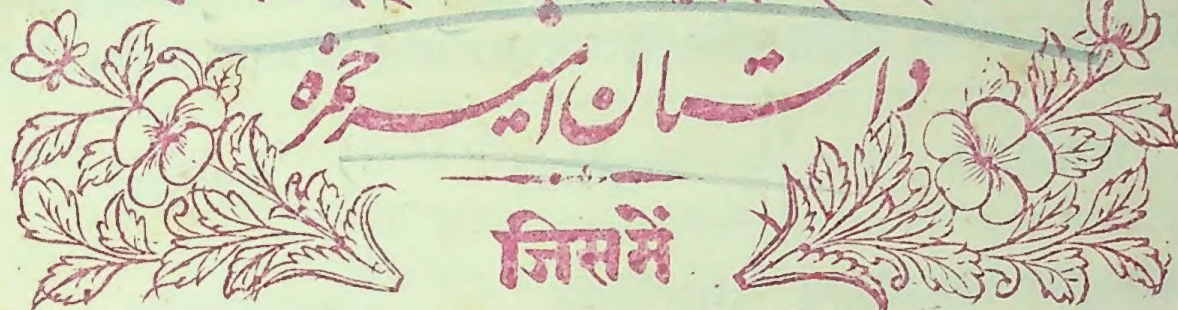 داستان امیر حمزہ
जिसमें